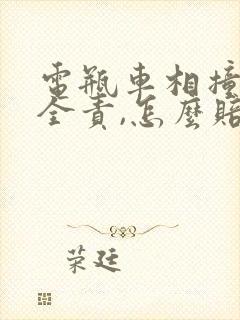 電瓶車相撞
全責,怎麼賠
榮廷